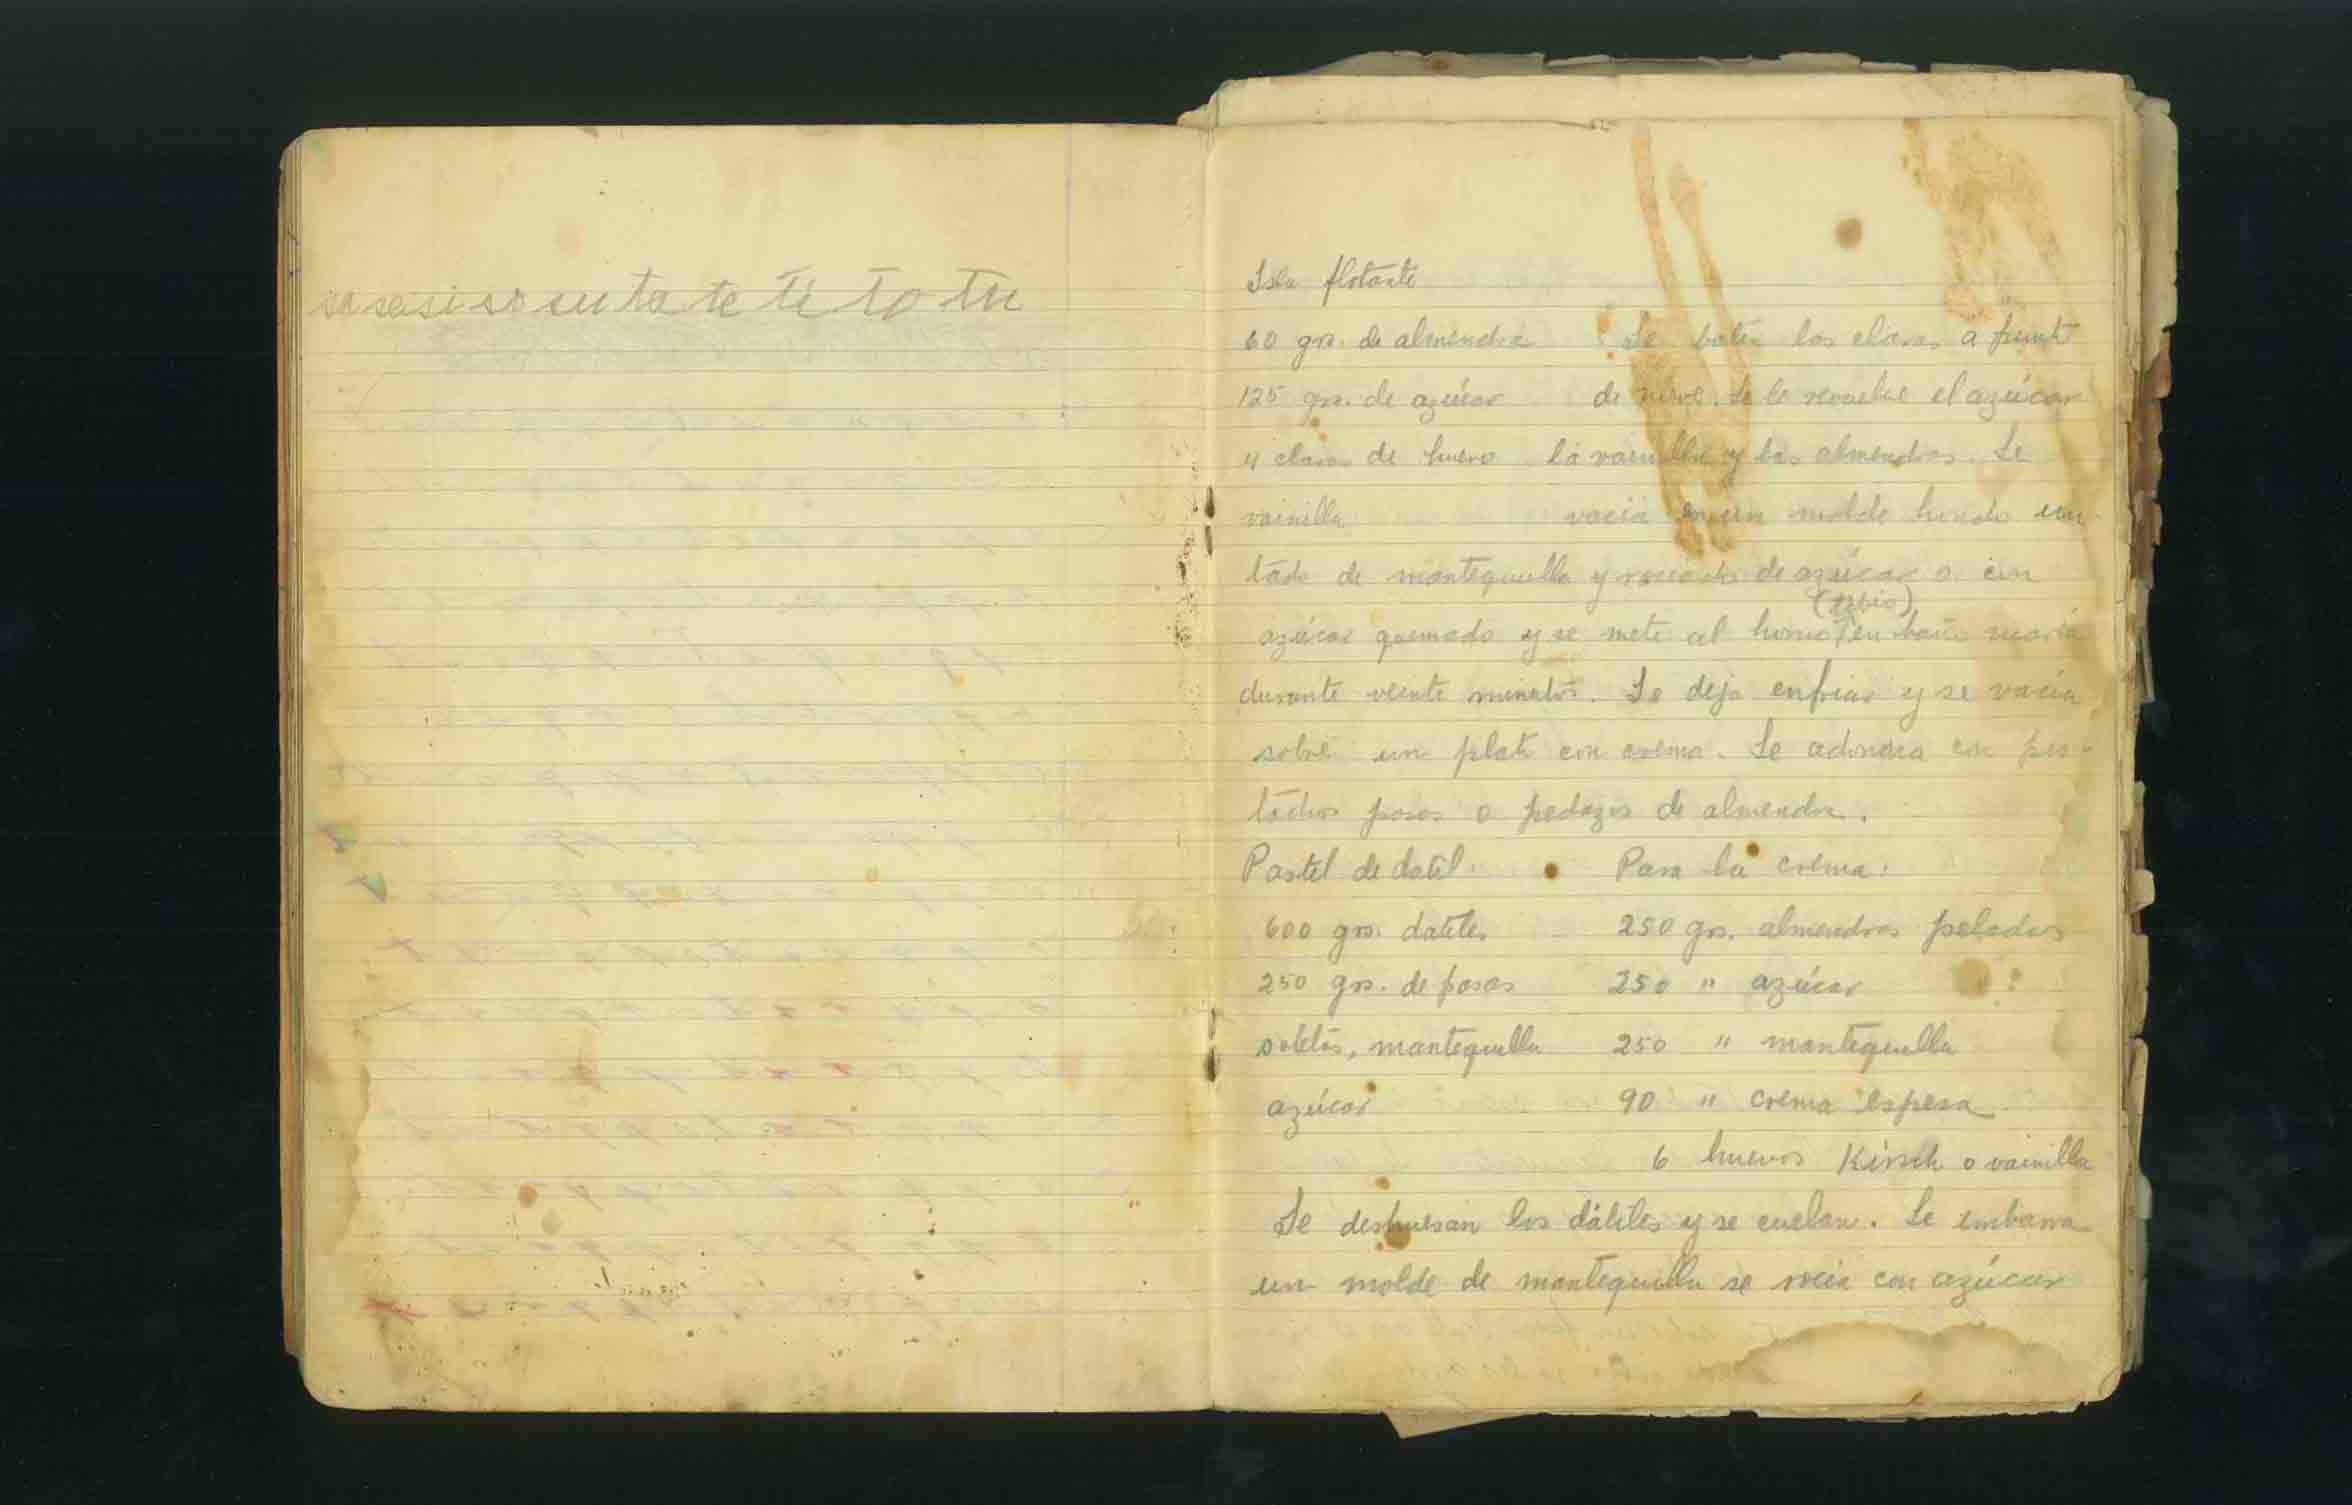 sa se si so su ta te ti to tu
Isla flotante
60 grs. de almendra Se baten las claras a punto
125 grs. de azúcar de nieve. Se le revuelve el azúcar
4 claras de huevo la vainilla y las almendras. Se
vainilla vacia en un molde hondo un-
tado de mantequilla y rociado de azúcar o con
(tibio)
azúcar quemado y se mete al horno en baño maría
durante veinte minutos. Se deja enfriar y se vacia
sobre un plato con crema. Se adorna con pis-
tachos pasas o pedazos de almendra.
Pastel de datil Para la crema:
600 grs. datiles 250 grs. almendras peladas
250 grs. de pasas 250 " azúcar
soletas, mantequilla 250 " mantequilla
azúcar 90 " crema espesa
6 huevos Kirsch o vainilla
Se deshuesan los dátiles y se cuelan. Se embarra
un molde de mantequilla se rocia con azúcar